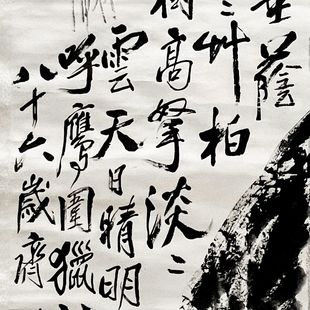 蔭
艸柏
高擎淡〻
雲天日晴明
呼鷹圍獵
八十六歲齊